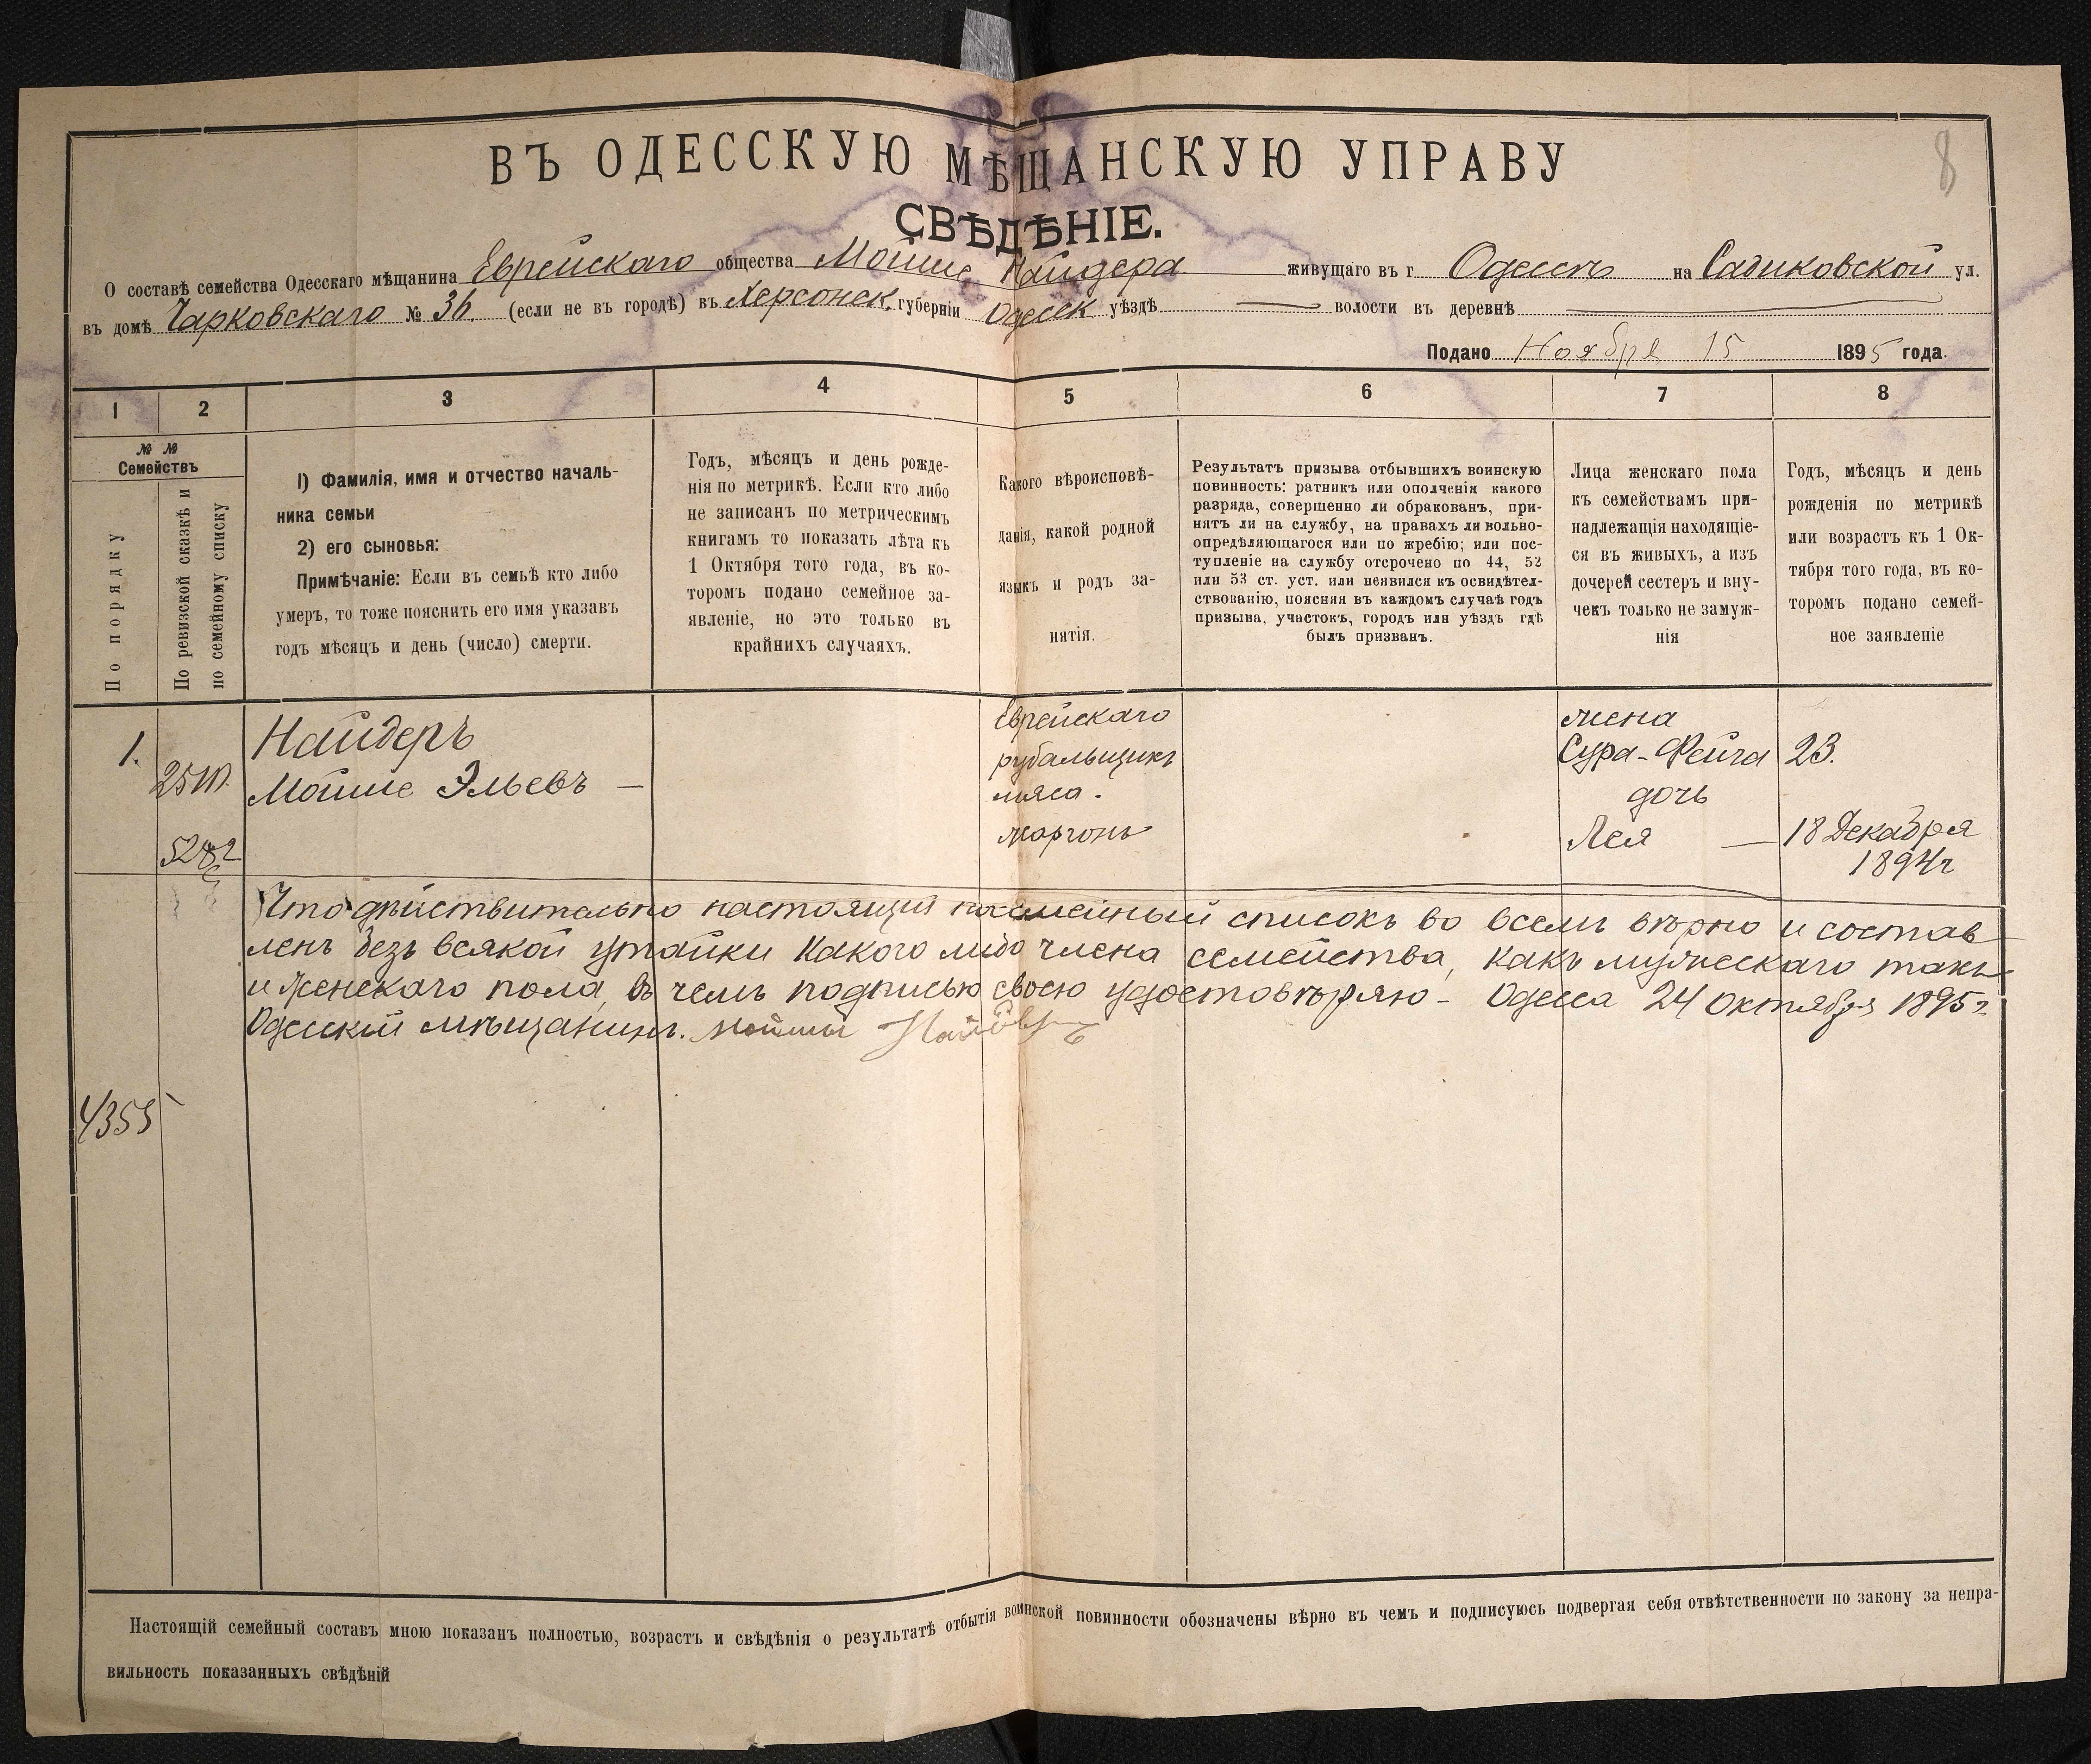 8
ВЪ ОДЕССКУЮ МѢЩАНСКУЮ УПРАВУ
СВѢДѢНІЕ.
О составѣ семейства Одесскаго мѣщанина Еврейскаго общества Мойше Найдера живущаго въ г Одессѣ на Садиковской ул.
въ домѣ Чарковскаго № 36. (если не въ городѣ) въ Херсонск. губерніи Одесск уѣздѣ волости въ деревнѣ
Подано Ноября 15 1895 года.
1 2 3 4 5 6 7 8
№ № Семействъ
По порядку
По ревизской сказкѣ и
по семейному списку
1) Фамилія, имя и отчество началь-
ника семьи
2) его сыновья:
Примѣчаніе: Если въ семьѣ кто либо
умеръ, то тоже пояснить его имя указавъ
годъ мѣсяцъ и день (число) смерти.
Годъ, мѣсяцъ и день рожде-
нія по метрикѣ. Если кто либо
не записанъ по метрическимъ
книгамъ то показать лѣта къ
1 Октября того года, въ ко-
торомъ подано семейное за-
явленіе, но это только въ
крайнихъ случаяхъ.
Какого вѣроисповѣ-
данія, какой родной
языкъ и родъ за-
нятія.
Результатъ призыва отбывшихъ воинскую
повинность: ратникъ или ополченія какого
разряда, совершенно ли обракованъ, при-
нятъ ли на службу, на правахъ ли вольно-
опредѣляющагося или по жребію; или пос-
тупленіе на службу отсрочено по 44, 52
или 53 ст. уст. или неявился къ освидѣтел-
ствованію, поясняя въ каждомъ случаѣ годъ
призыва, участокъ, городъ или уѣздъ гдѣ
былъ призванъ.
Лица женскаго пола
къ семействамъ при-
надлежащія находящіе-
ся въ живыхъ, а изъ
дочерей сестеръ и вну-
чекъ только не замуж-
нія
Годъ, мѣсяцъ и день
рожденія по метрикѣ
или возрастъ къ 1 Ок-
тября того года, въ ко-
торомъ подано семей-
ное заявленіе
1.
Найдеръ
Мойше Эльевъ —
Еврейскаго
рубальщикъ
мяса.
жаргонъ
жена
Сура-Фейга 23.
дочь
Лея — 18 Декабря
1894г
Что дѣйствительно настоящій посемейный списокъ во всемъ вѣрно и состав
ленъ безъ всякой утайки какого либо члена семейства, какъ мужескаго такъ
и женскаго пола, въ чемъ подписью своею удостовѣряю - Одесса 24 октября 1895г.
Одесскій мѣщанинъ. Мойше Найдеръ
4355
Настоящій семейный составъ мною показанъ полностью, возрастъ и свѣдѣнія о результатѣ отбытія воинской повинности обозначены вѣрно въ чемъ и подписуюсь подвергая себя отвѣтственности по закону за непра-
вильность показанныхъ свѣдѣній